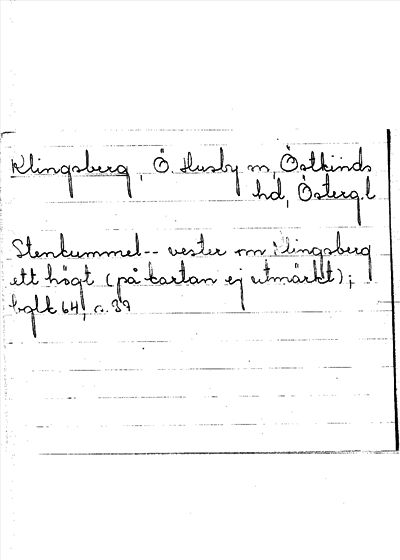 Klingsberg, Ö. Husby sn, Östkinds
hd, Östergl
Stenkummel-- vester om Klingsberg
ett högt (på kartan ej utmärkt);
bglt 64, s. 39